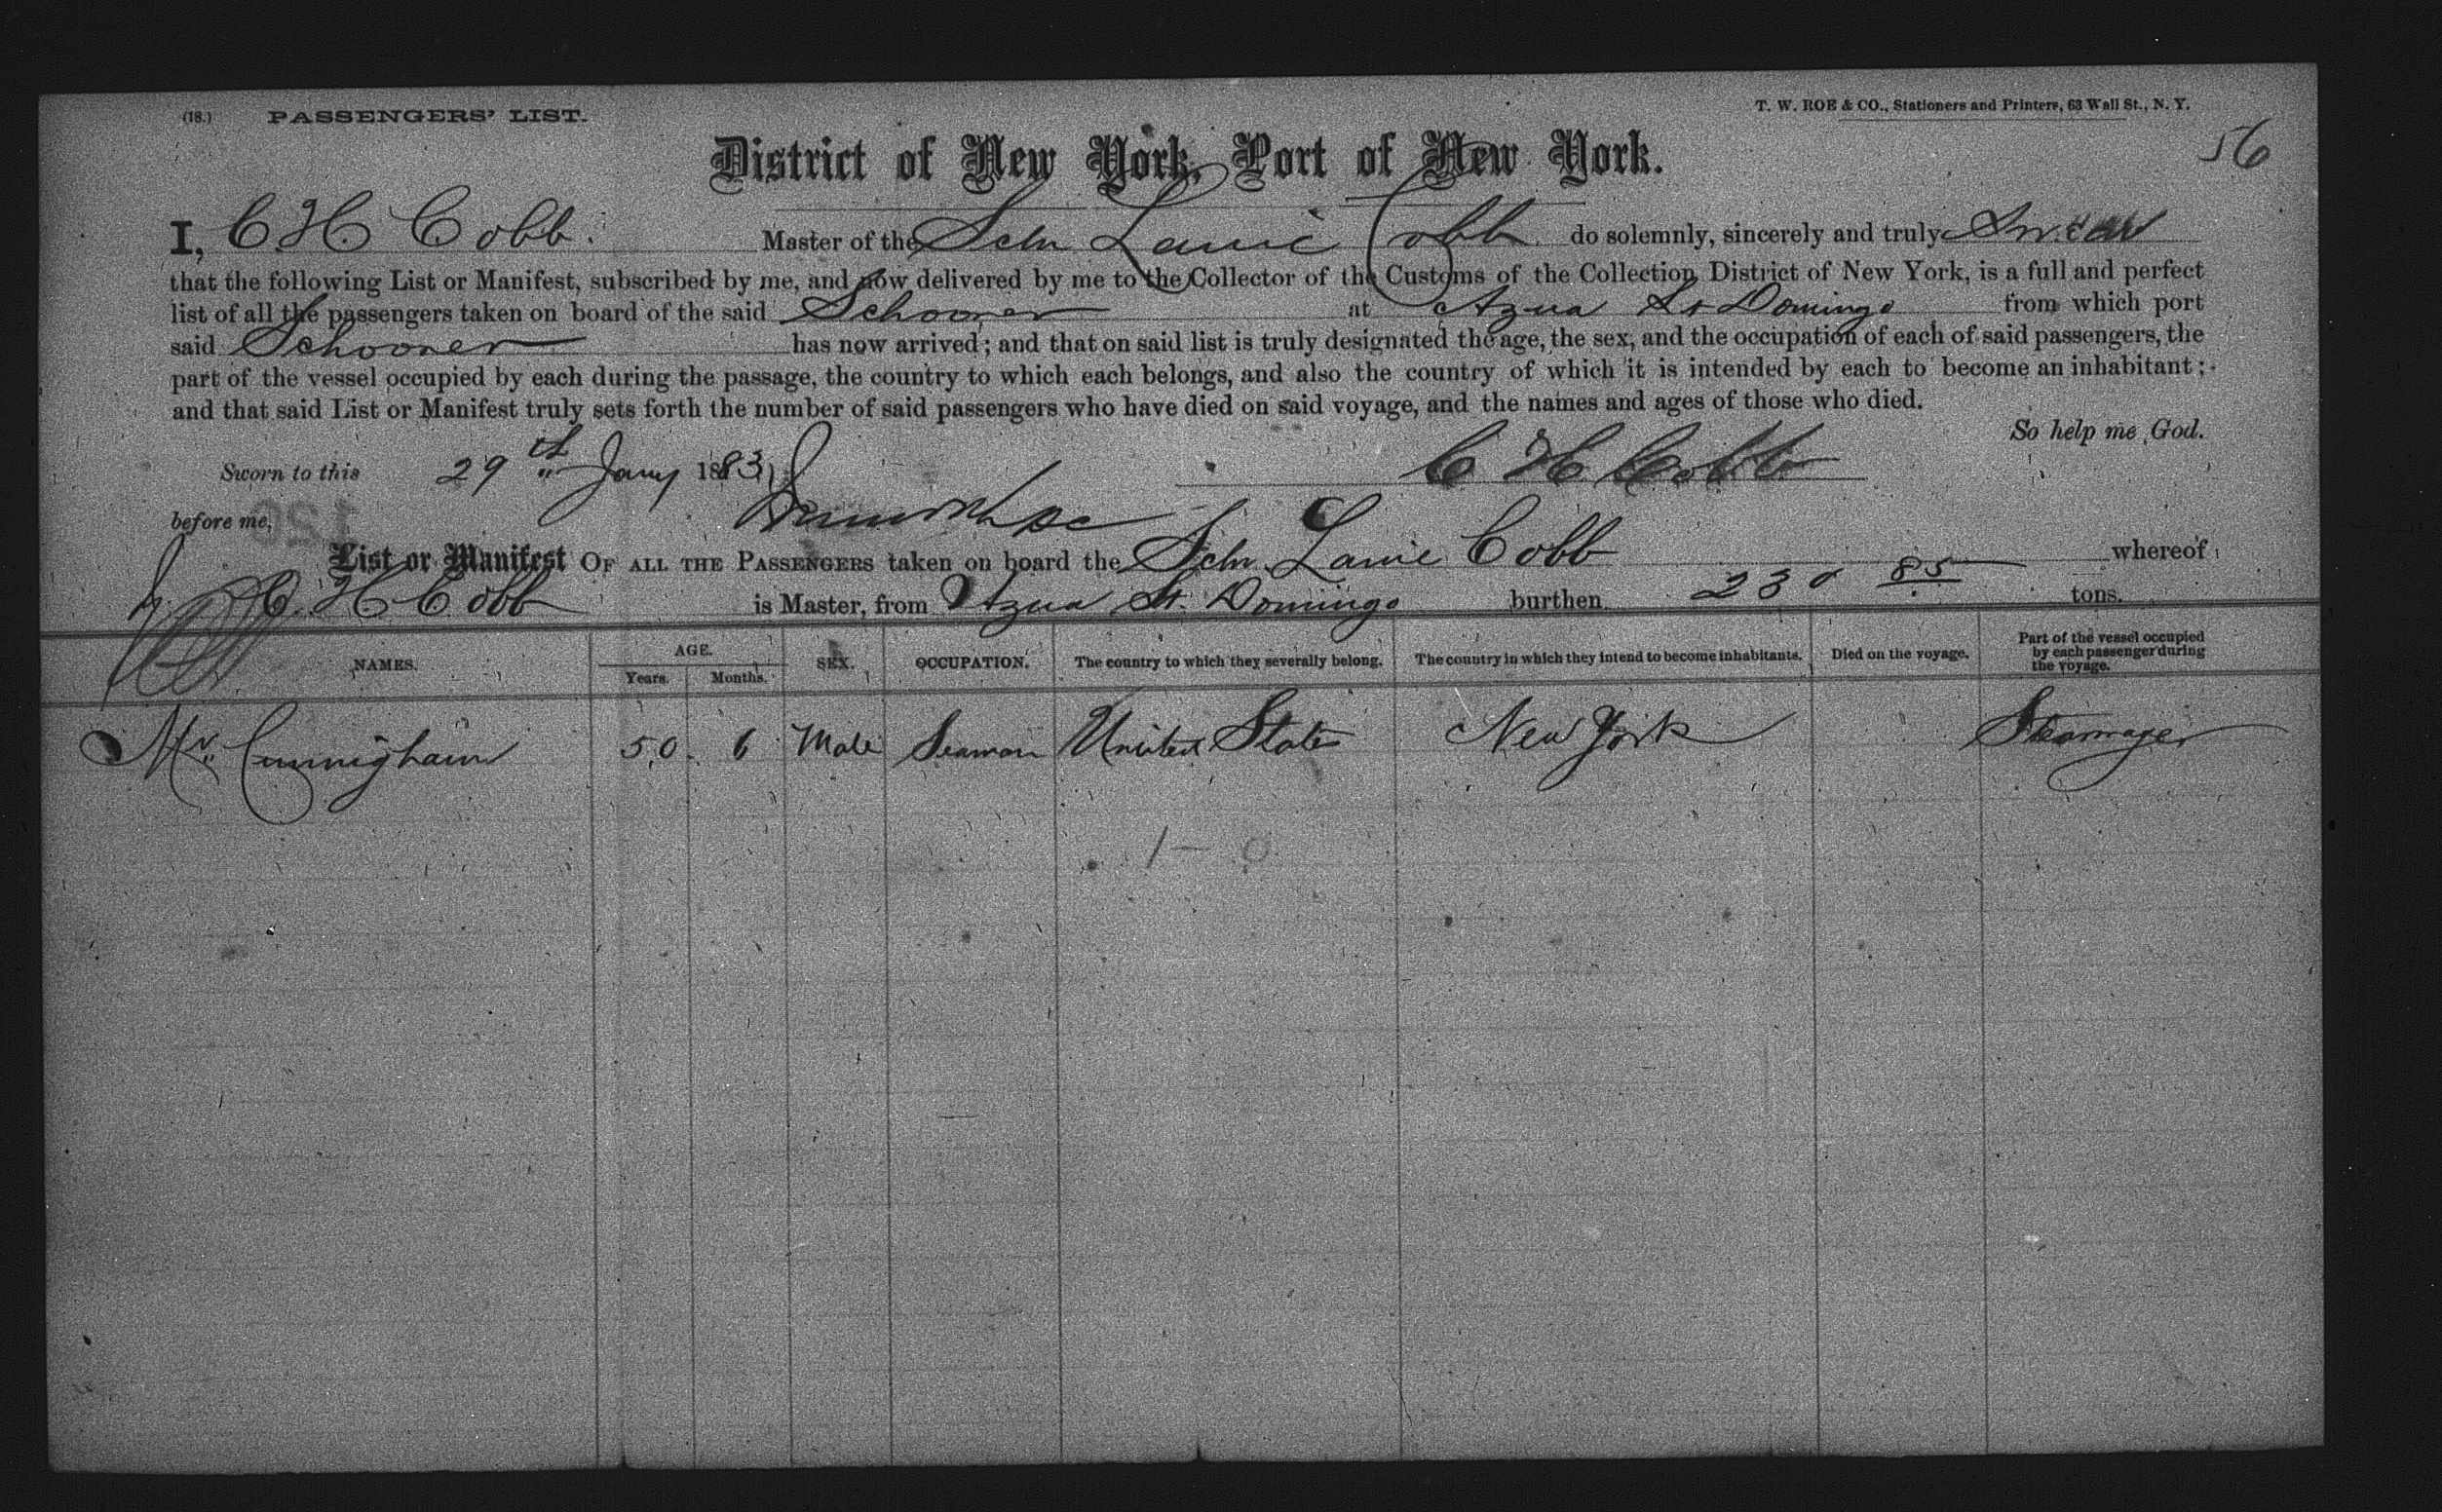 (18.) PASSENGERS' LIST.
T. W. ROE & CO., Stationers and Printers, 63 Wall St., N. Y.
56
District of New York, Port of New York.
I, C H Cobb. Master of the Schr Lanie Cobb do solemnly, sincerely and truly Swear
that the following List or Manifest, subscribed by me, and now delivered by me to the Collector of the Customs of the Collection District of New York, is a full and perfect
list of all the passengers taken on board of the said Schooner at Azua St Domingo from which port
said Schooner has now arrived; and that on said list is truly designated the age, the sex, and the occupation of each of said passengers, the
part of the vessel occupied by each during the passage, the country to which each belongs, and also the country of which it is intended by each to become an inhabitant;
and that said List or Manifest truly sets forth the number of said passengers who have died on said voyage, and the names and ages of those who died.
So help me God.
Sworn to this 29th Jany 1883, C H Cobb
before me,
List or Manifest OF ALL THE PASSENGERS taken on board the Schr. Lanie Cobb whereof
C. H Cobb is Master, from Azua St. Domingo burthen 230 85 tons.
NAMES. AGE. Years. Months. SEX. OCCUPATION. The country to which they severally belong. The country in which they intend to become inhabitants. Died on the voyage. Part of the vessel occupied by each passenger during the voyage.
Mr. Cunnigham 50 6 Male Seaman United States New York
1 - 0